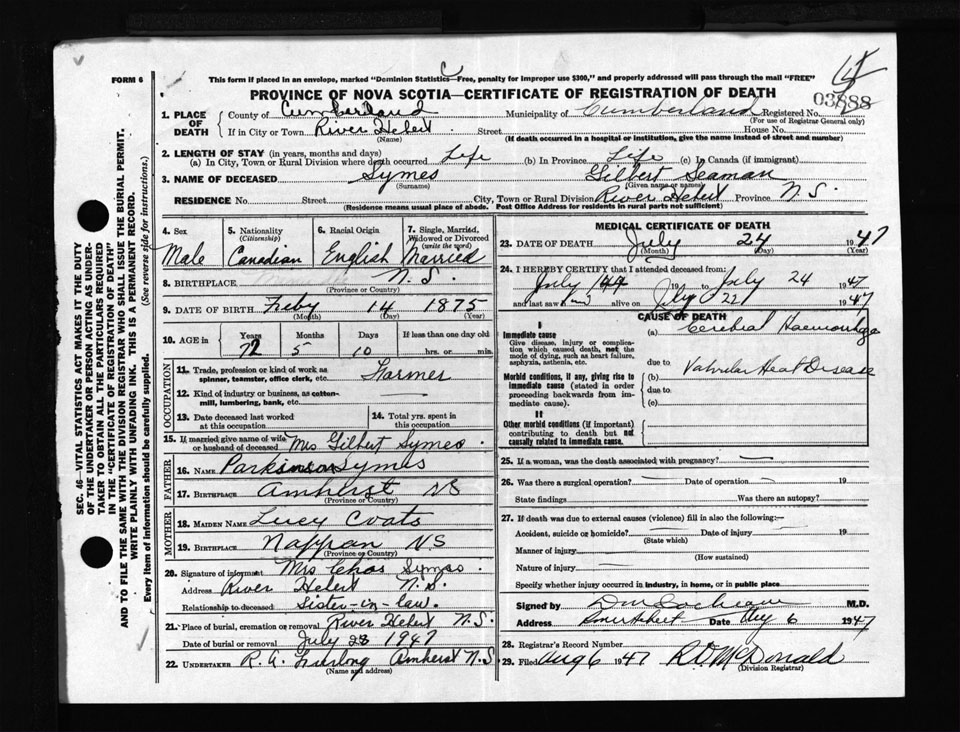 FORM 6
This form if placed in an envelope, marked "Dominion Statistics—Free, penalty for improper use $300," and properly addressed will pass through the mail "FREE"
PROVINCE OF NOVA SCOTIA—CERTIFICATE OF REGISTRATION OF DEATH
03888
1. PLACE OF DEATH
County of Cumberland Municipality of Cumberland Registered No.
(For use of Registrar General only)
If in City or Town River Hebert Street House No.
(Name) (If death occurred in a hospital or institution, give the name instead of street and number)
2. LENGTH OF STAY (in years, months and days)
(a) In City, Town or Rural Division where death occurred Life (b) In Province Life (c) In Canada (if immigrant)
3. NAME OF DECEASED Symes Gilbert Seaman
(Surname) (Given name or names)
RESIDENCE No. Street City, Town or Rural Division River Hebert Province N.S.
(Residence means usual place of abode. Post Office Address for residents in rural parts not sufficient)
4. Sex Male
5. Nationality (Citizenship) Canadian
6. Racial Origin English
7. Single, Married, Widowed or Divorced (write the word) Married
8. BIRTHPLACE N.S.
(Province or Country)
9. DATE OF BIRTH Feby 14 1875
(Month) (Day) (Year)
10. AGE in Years Months Days If less than one day old
72 5 10 hrs. or min.
OCCUPATION
11. Trade, profession or kind of work as spinner, teamster, office clerk, etc. Farmer
12. Kind of industry or business, as cotton-mill, lumbering, bank, etc. —
13. Date deceased last worked at this occupation
14. Total yrs. spent in this occupation
15. If married give name of wife or husband of deceased Mrs Gilbert Symes.
FATHER
16. Name Parkinson Symes
17. Birthplace Amherst NS
(Province or Country)
MOTHER
18. Maiden Name Lucy Coats
19. Birthplace Nappan N.S
(Province or Country)
20. Signature of informant Mrs Chas Symes
Address River Hebert N.S.
Relationship to deceased Sister-in-law.
21. Place of burial, cremation or removal River Hebert N.S.
Date of burial or removal July 28 1947
22. UNDERTAKER R. A. Amherst N.S.
(Name and address)
MEDICAL CERTIFICATE OF DEATH
23. DATE OF DEATH July 24 1947
(Month) (Day) (Year)
24. I HEREBY CERTIFY that I attended deceased from:
July 44 to July 24 1947
and last saw him alive on July 22 1947
CAUSE OF DEATH
I
Immediate cause
Give disease, injury or complication which caused death, not the mode of dying, such as heart failure, asphyxia, asthenia, etc.
(a) Cerebral Haemorrhage
due to
Morbid conditions, if any, giving rise to immediate cause (stated in order proceeding backwards from immediate cause).
(b) Valvular Heat Disease
due to
(c)
II
Other morbid conditions (if important) contributing to death but not causally related to immediate cause.
25. If a woman, was the death associated with pregnancy? —
26. Was there a surgical operation? — Date of operation — 19
State findings Was there an autopsy?
27. If death was due to external causes (violence) fill in also the following:—
Accident, suicide or homicide? Date of injury 19
(State which)
Manner of injury
(How sustained)
Nature of injury —
Specify whether injury occurred in industry, in home, or in public place
Signed by D M Cochrane M.D.
Address Date Aug 6 1947
28. Registrar's Record Number
29. Filed Aug 6 1947 R D McDonald
(Division Registrar)
SEC. 46—VITAL STATISTICS ACT MAKES IT THE DUTY
OF THE UNDERTAKER OR PERSON ACTING AS UNDER-
TAKER TO OBTAIN ALL THE PARTICULARS REQUIRED
IN THE "CERTIFICATE OF REGISTRATION OF DEATH"
AND TO FILE THE SAME WITH THE DIVISION REGISTRAR WHO SHALL ISSUE THE BURIAL PERMIT.
WRITE PLAINLY WITH UNFADING INK. THIS IS A PERMANENT RECORD.
Every item of information should be carefully supplied. (See reverse side for instructions.)